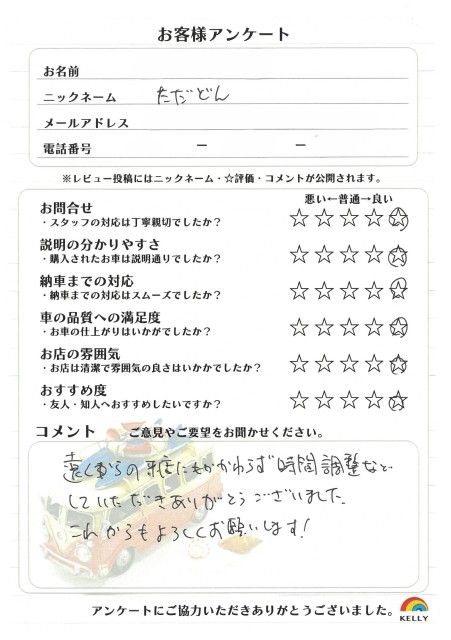 お客様アンケート
お名前
ニックネーム ただどん
メールアドレス
電話番号 ー ー
※レビュー投稿にはニックネーム・☆評価・コメントが公開されます。
悪い←普通→良い
お問合せ
・スタッフの対応は丁寧親切でしたか? ☆☆☆☆☆
説明の分かりやすさ
・購入されたお車は説明通りでしたか? ☆☆☆☆☆
納車までの対応
・納車までの対応はスムーズでしたか? ☆☆☆☆☆
車の品質への満足度
・お車の仕上がりはいかがでしたか? ☆☆☆☆☆
お店の雰囲気
・お店は清潔で雰囲気の良さはいかかでしたか? ☆☆☆☆☆
おすすめ度
・友人・知人へおすすめしたいですか? ☆☆☆☆☆
コメント ご意見やご要望をお聞かせください。
遠くからの来店にもかかわらず時間調整など
していただきありがとうございました。
これからもよろしくお願いします!
アンケートにご協力いただきありがとうございました。
KELLY